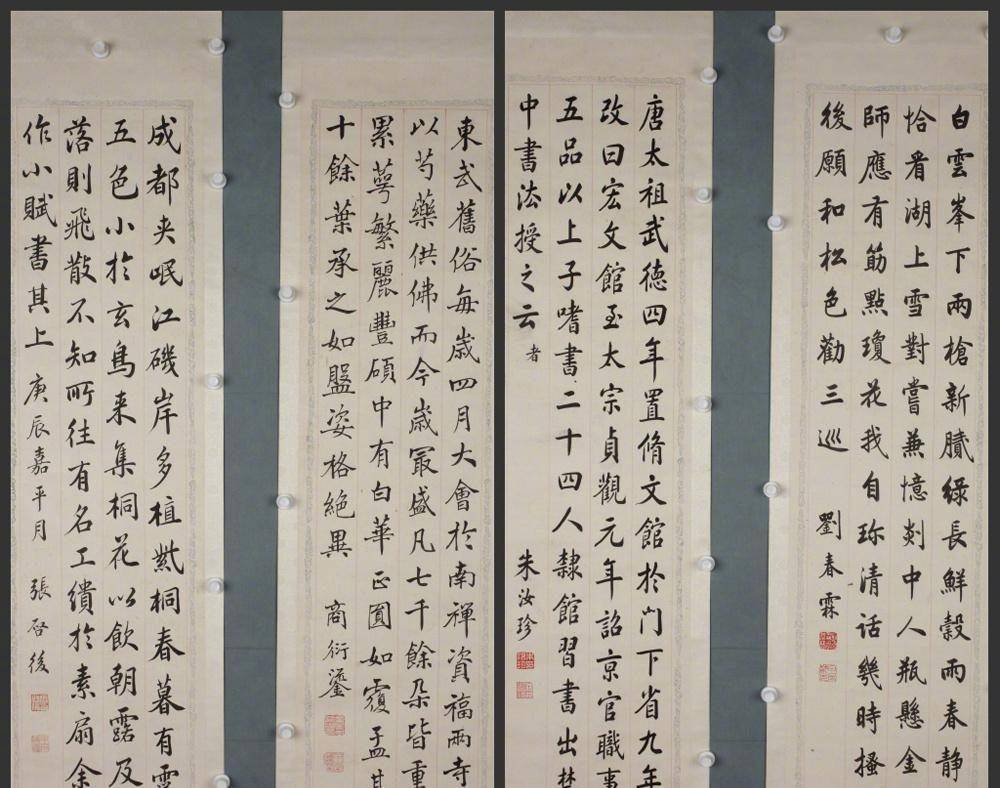 白雲峯下兩槍新膩綠長鮮穀雨春静
恰看湖上雪對嘗兼憶剡中人瓶懸金
師應有筯點瓊花我自珎清話幾時搔
後願和松色勸三巡 劉春霖
唐太祖武德四年置脩文館於门下省九年
改曰宏文館至太宗貞觀元年詔京官職事
五品以上子嗜書二十四人隸館習書出禁
中書法授之云者 朱汝珍
東武舊俗每歲四月大會於南禪資福兩寺
以芍藥供佛而今歲冣盛凡七千餘朵皆重
累萼繁麗豐碩中有白華正圓如覆盂其
十餘葉承之如盤姿格絶異 商衍鎏
成都夹岷江磯岸多植紫桐春暮有靈
五色小於玄鳥来集桐花以飲朝露及
落則飛散不知所往有名工繢於素扇余
作小賦書其上 庚辰嘉平月 張啓後